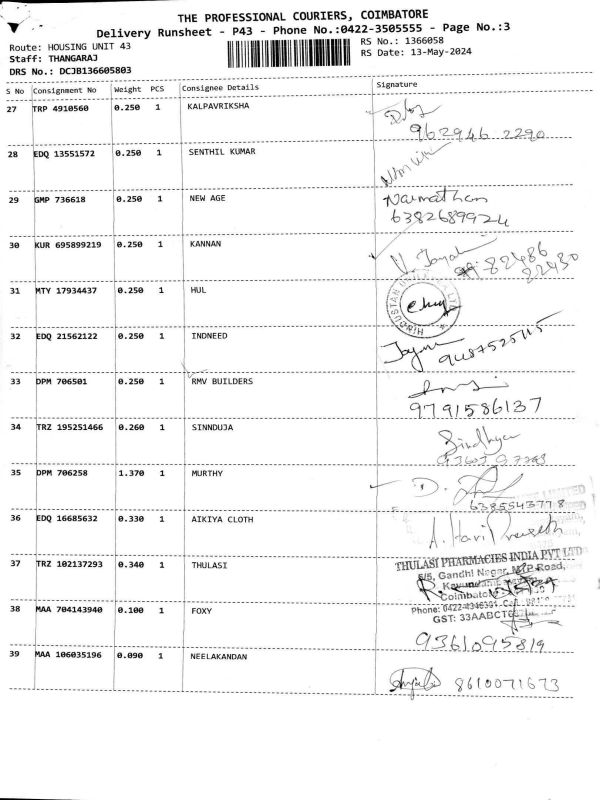 THE PROFESSIONAL COURIERS, COIMBATORE
Delivery Runsheet - P43 - Phone No.:0422-3505555 - Page No.:3
Route: HOUSING UNIT 43
RS No.: 1366058
Staff: THANGARAJ
RS Date: 13-May-2024
DRS No.: DCJB136605803
S No Consignment No Weight PCS Consignee Details Signature
27 TRP 4910560 0.250 1 KALPAVRIKSHA
962946 2290
28 EDQ 13551572 0.250 1 SENTHIL KUMAR
29 GMP 736618 0.250 1 NEW AGE
6382689924
30 KUR 695899219 0.250 1 KANNAN
82486
22430
31 MTY 17934437 0.250 1 HUL
HINDUSTAN
32 EDQ 21562122 0.250 1 INDNEED
33 DPM 706501 0.250 1 RMV BUILDERS
9791586137
34 TRZ 195251466 0.260 1 SINNDUJA
Sindhya
35 DPM 706258 1.370 1 MURTHY
D.
6385543778
36 EDQ 16685632 0.330 1 AIKIYA CLOTH
A. Hari
37 TRZ 102137293 0.340 1 THULASI
THULASI PHARMACIES INDIA PVT LTD
5/5, Gandhi Nagar, Road,
38 MAA 704143940 0.100 1 FOXY
Phone: 0422-4346301
GST: 33AABCT
9361095819
39 MAA 106035196 0.090 1 NEELAKANDAN
8610071673